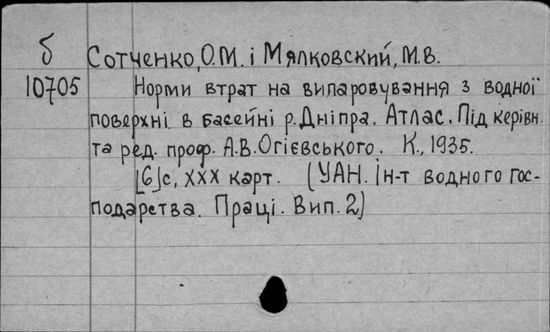 б
10705
Сотченко, О.М. і Мялковский, М.В.
Норми втрат на випаровування з водної
поверхні в басейні р. Дніпра. Атлас. Під керівн.
та ред. проф. А.В. Огієвського. К., 1935.
[6]с, XXX карт. (УАН. Ін-т водного гос-
подарства. Праці. Вип. 2)